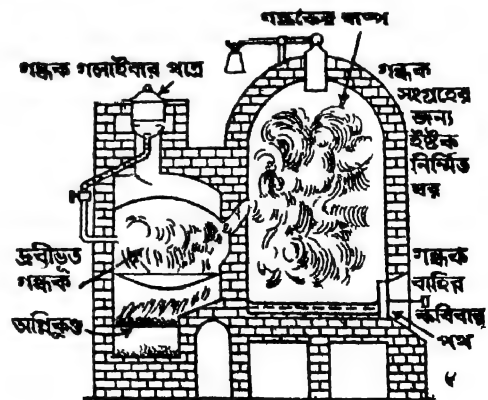 গন্ধকের বাষ্প
গন্ধক গলাইবার পাত্র
গন্ধক
সংগ্রহের
জন্য
ইষ্টক
নির্মিত
ঘর
দ্রবীভূত
গন্ধক
অগ্নিকুণ্ড
গন্ধক
বাহির
করিবার
পথ